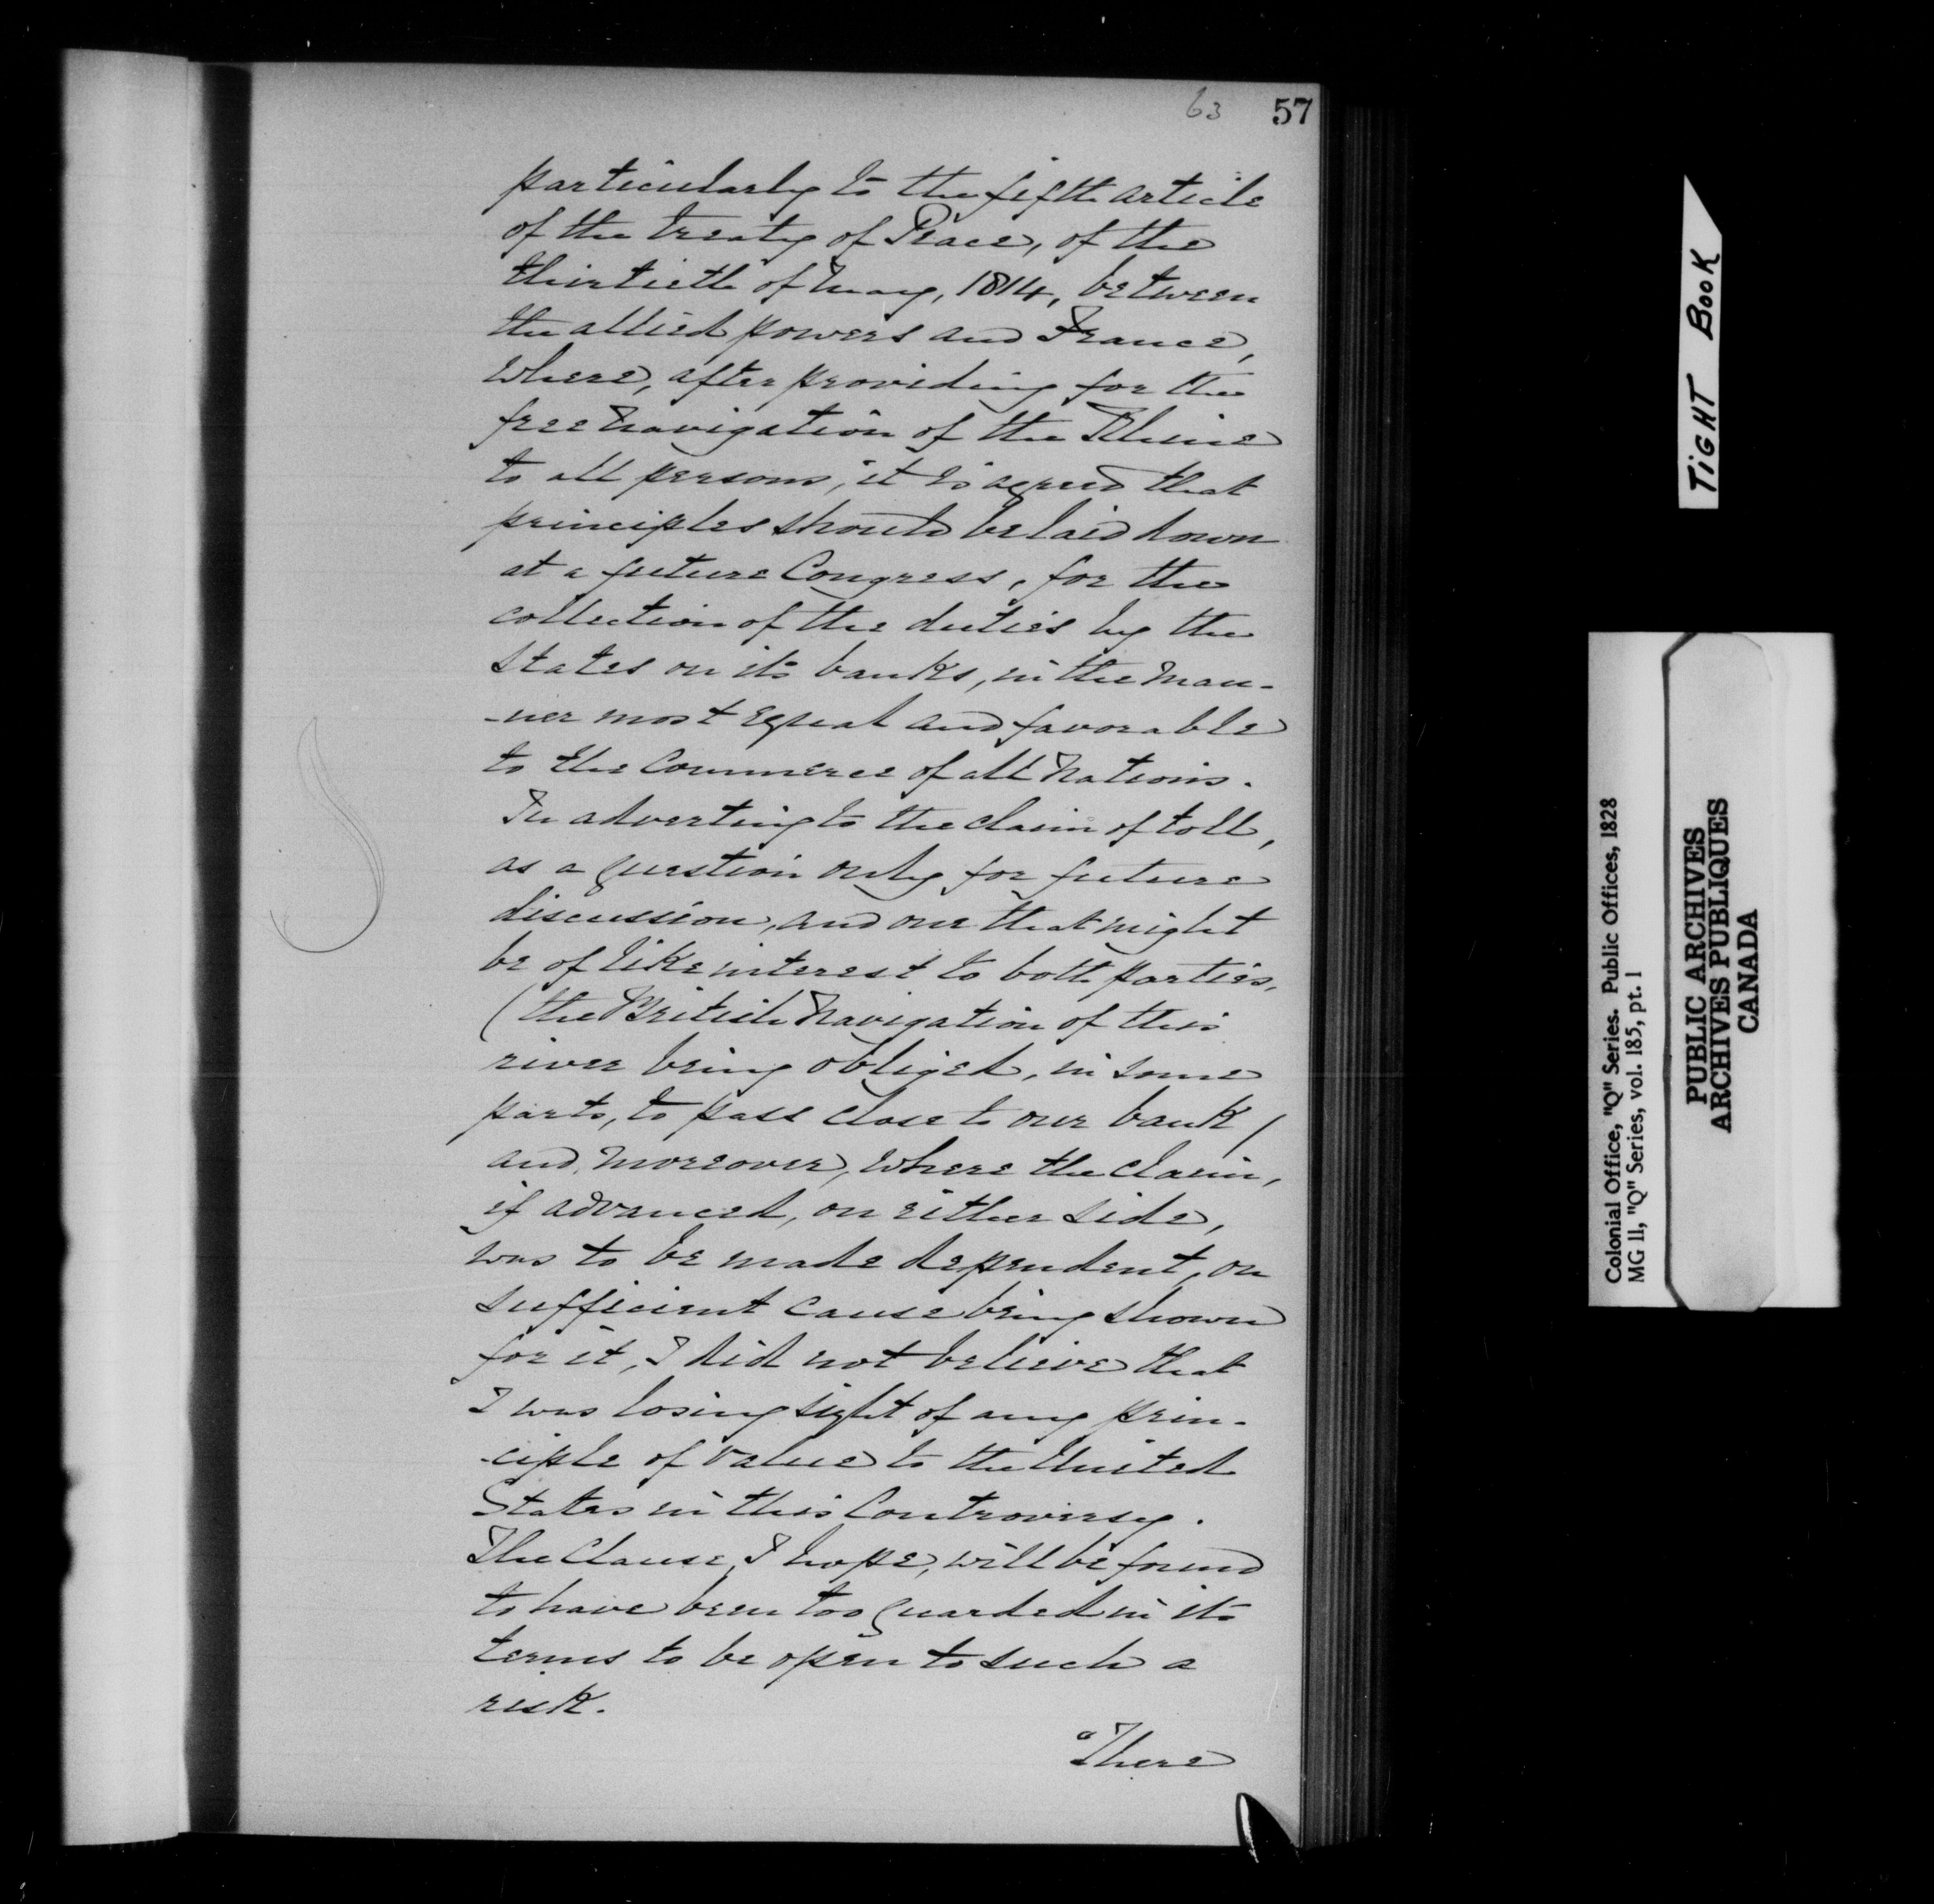 63 57
particularly to the fifth article
of the treaty of Peace, of the
thirtieth of May, 1814, between
the allied powers and France,
where, after providing for the
free navigation of the Rhine
to all persons, it is agreed that
principles should be laid down
at a future Congress, for the
collection of the duties by the
States on its banks, in the man-
-ner most equal and favorable
to the Commerce of all Nations.
In adverting to the claim of toll,
as a question only for future
discussion, and one that might
be of like interest to both parties,
(the British navigation of this
river being obliged, in some
parts, to pass close to our bank)
and, moreover, where the claim,
if advanced, on either side,
was to be made dependent, on
sufficient cause being shown
for it, I did not believe that
I was losing sight of any prin-
-ciple of value to the United
States in this Controversy.
The Clause, I hope, will be found
to have been too guarded in its
terms to be open to such a
risk.
"There
TIGHT BOOK
Colonial Office, "Q" Series. Public Offices, 1828
MG 11, "Q" Series, vol. 185, pt. 1
PUBLIC ARCHIVES
ARCHIVES PUBLIQUES
CANADA